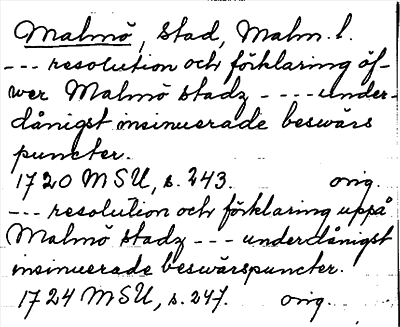 Malmö, stad, Malm. l.
--- resolution och förklaring öf-
wer Malmö stadz ---- under-
dånigst insinuerade beswärs
puncter.
1720 MSU, s. 243. orig.
--- resolution och förklaring uppå
Malmö stadz --- underdånigst
insinuerade beswärspuncter.
1724 MSU, s. 247. orig.